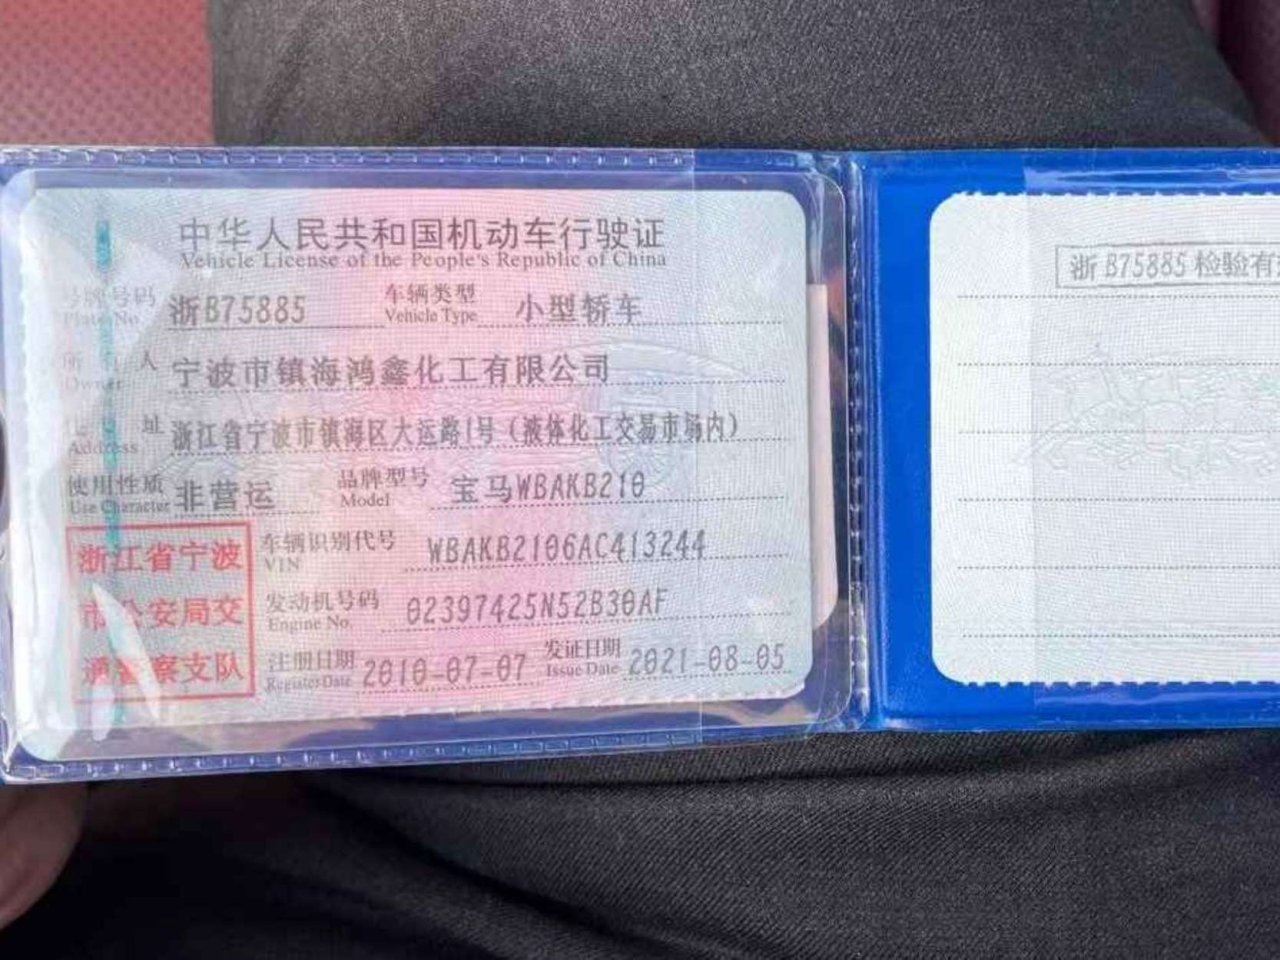 中华人民共和国机动车行驶证
Vehicle License of the People's Republic of China
号牌号码 浙B75885 车辆类型 小型轿车
Plate No. Vehicle Type
所有人 宁波市镇海鸿鑫化工有限公司
Owner
住址 浙江省宁波市镇海区大运路1号（液体化工交易市场内）
Address
使用性质 非营运 品牌型号 宝马WBAKB210
Use Character Model
车辆识别代号 WBAKB2106AC413244
VIN
发动机号码 02397425N52B30AF
Engine No.
注册日期 2010-07-07 发证日期 2021-08-05
Register Date Issue Date
浙江省宁波
市公安局交
通警察支队
浙B75885 检验有